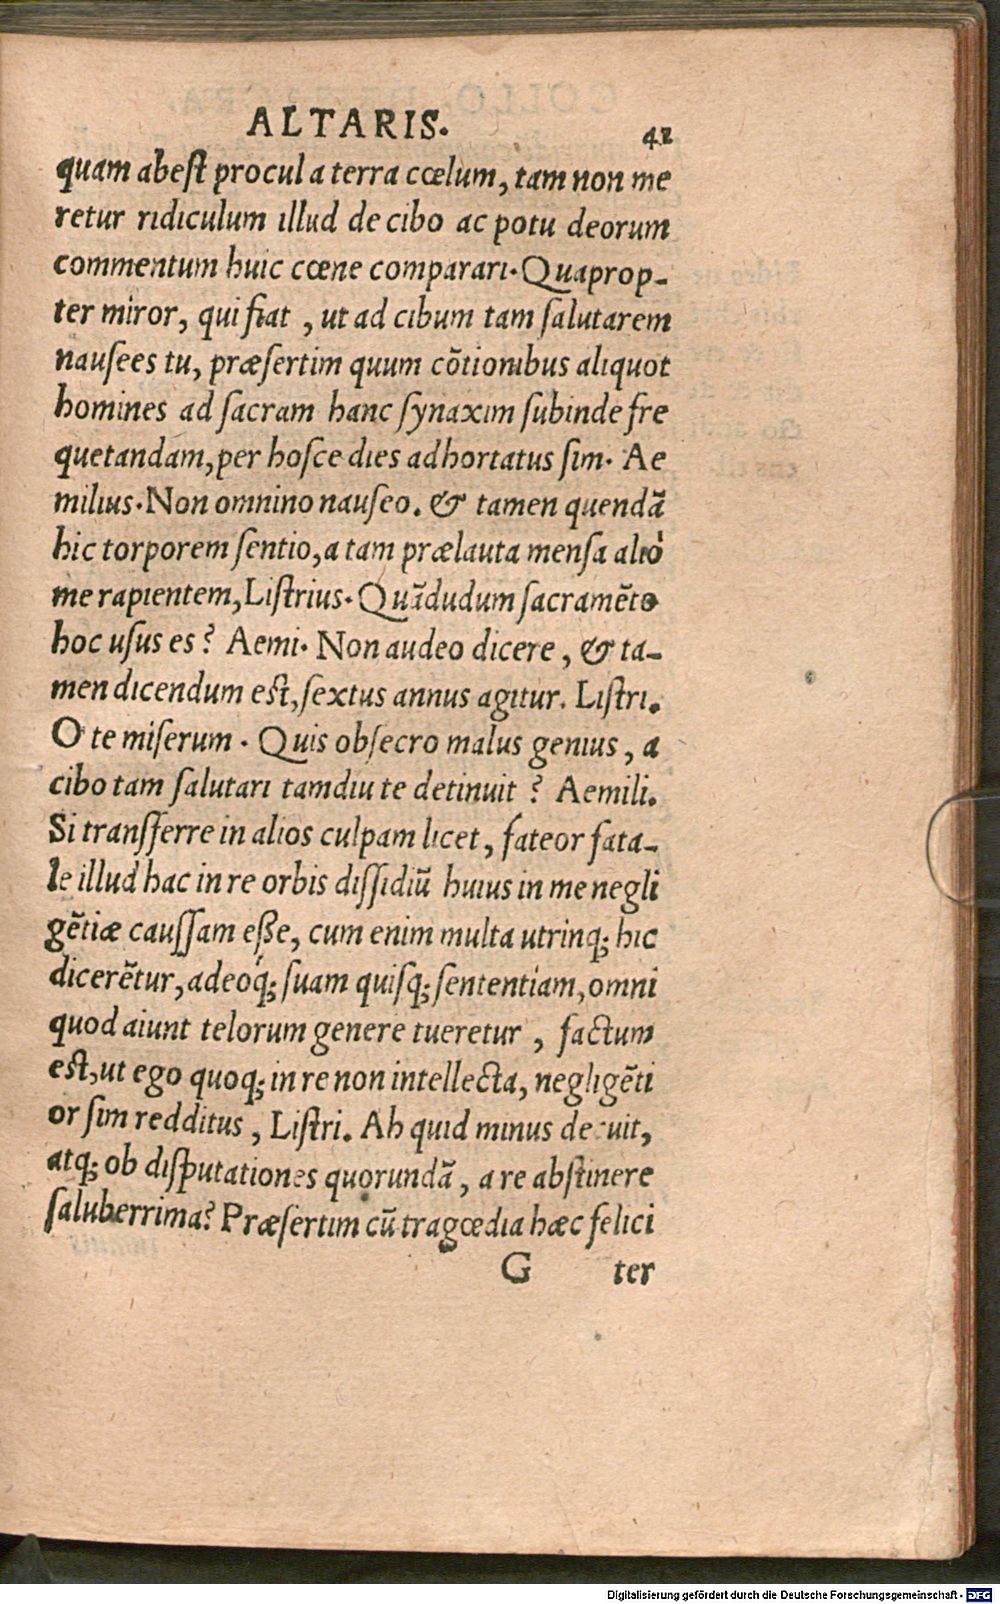 ALTARIS. 42
quam abest procul a terra cœlum, tam non me
retur ridiculum illud de cibo ac potu deorum
commentum huic cœne comparari. Quaprop-
ter miror, qui fiat , ut ad cibum tam salutarem
nausees tu, præsertim quum cõtionibus aliquot
homines ad sacram hanc synaxim subinde fre
quetandam, per hosce dies adhortatus sim. Ae
milius. Non omnino nauseo. & tamen quendã
hic torporem sentio, a tam prælauta mensa alio
me rapientem, Listrius. Quãdudum sacramẽto
hoc usus es? Aemi. Non audeo dicere , & ta-
men dicendum est, sextus annus agitur. Listri.
O te miserum . Quis obsecro malus genius , a
cibo tam salutari tamdiu te detinuit ? Aemili.
Si transferre in alios culpam licet , fateor fata-
le illud hac in re orbis dissidiũ huius in me negli
gẽtiæ caussam eße, cum enim multa utrinq; hic
dicerẽtur, adeoq́; suam quisq; sententiam, omni
quod aiunt telorum genere tueretur , factum
est, ut ego quoq; in re non intellecta, negligẽti
or sim redditus , Listri. Ah quid minus decuit,
atq; ob disputationes quorundã , a re abstinere
saluberrima? Præsertim cũ tragœdia hæc felici
G ter
Digitalisierung gefördert durch die Deutsche Forschungsgemeinschaft - DFG